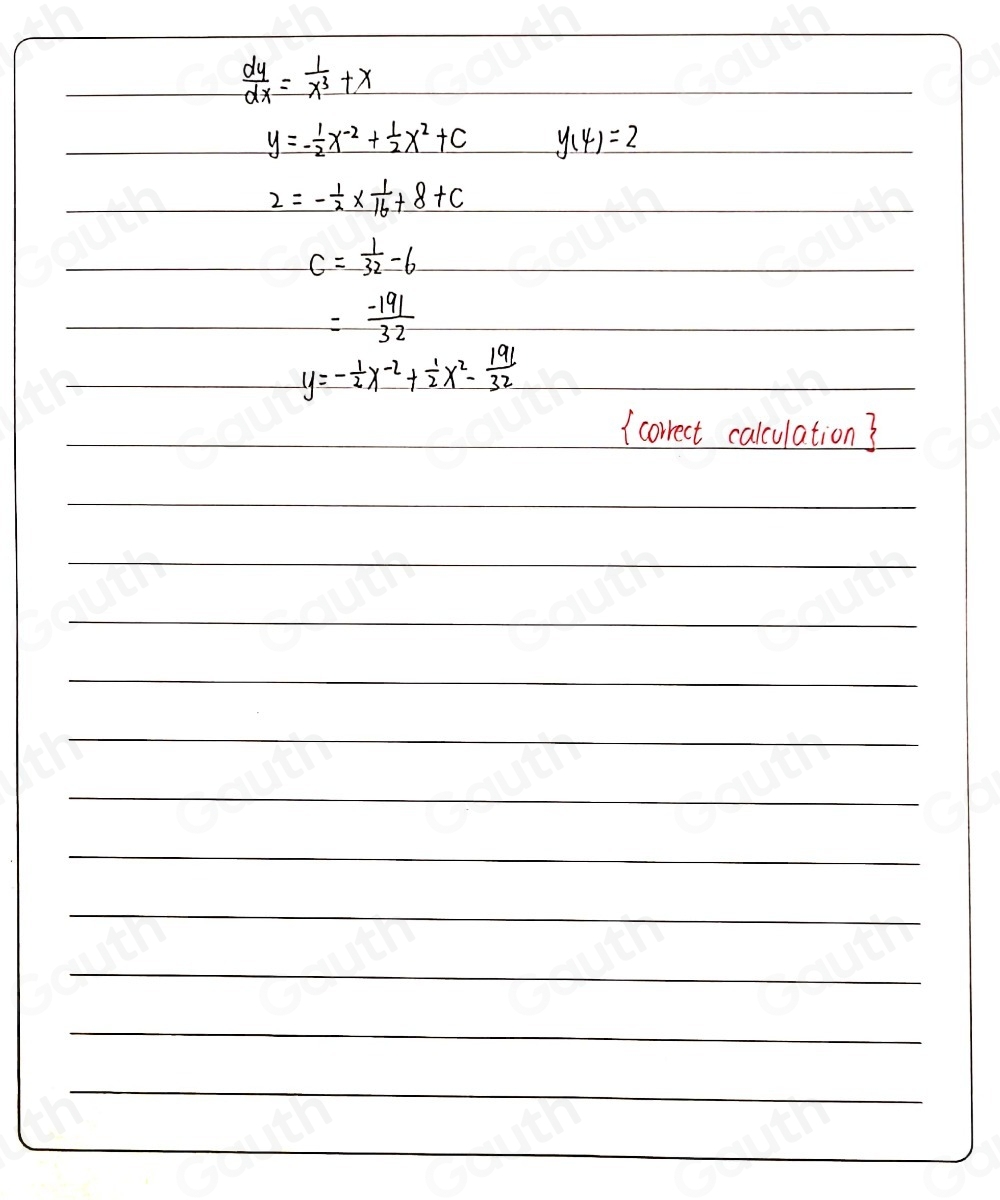 dy/dx = 1/x³ + x
y = -1/2 x⁻² + 1/2 x² + C y(4) = 2
2 = - 1/2 × 1/16 + 8 + C
C = 1/32 - 6
= -191/32
y = - 1/2 x⁻² + 1/2 x² - 191/32
{correct calculation}
Gauth